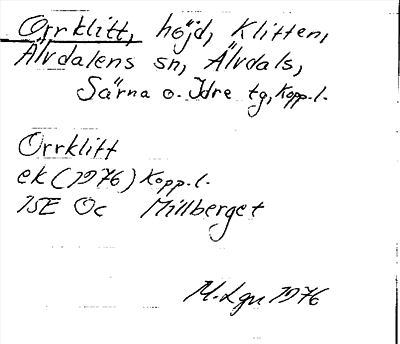 Orrklitt, höjd, Klitten,
Älvdalens sn, Älvdals,
Särna o. Idre tg, Kopp.l.
Orrklitt
ek (1976) Kopp.l.
15E Oc Millberget
M.Lgn 1976